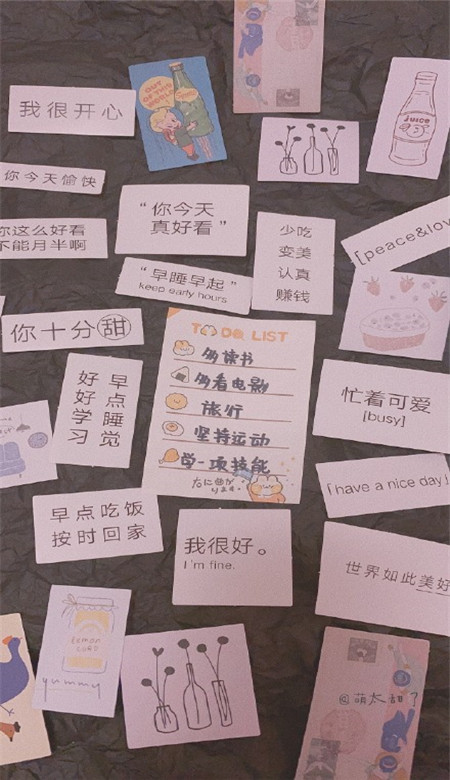 我很开心
OUT
OF THIS
WORLD
juice
你今天愉快
你这么好看
不能月半啊
“你今天
真好看”
少吃
变美
认真
赚钱
[peace&lov
“早睡早起”
keep early hours
你十分甜
TO DO LIST
多读书
多看电影
旅行
坚持运动
学一项技能
早点睡觉
好好学习
忙着可爱
[busy]
「have a nice day」
早点吃饭
按时回家
我很好。
I'm fine.
世界如此美好
lemon
yummy
@萌太甜?